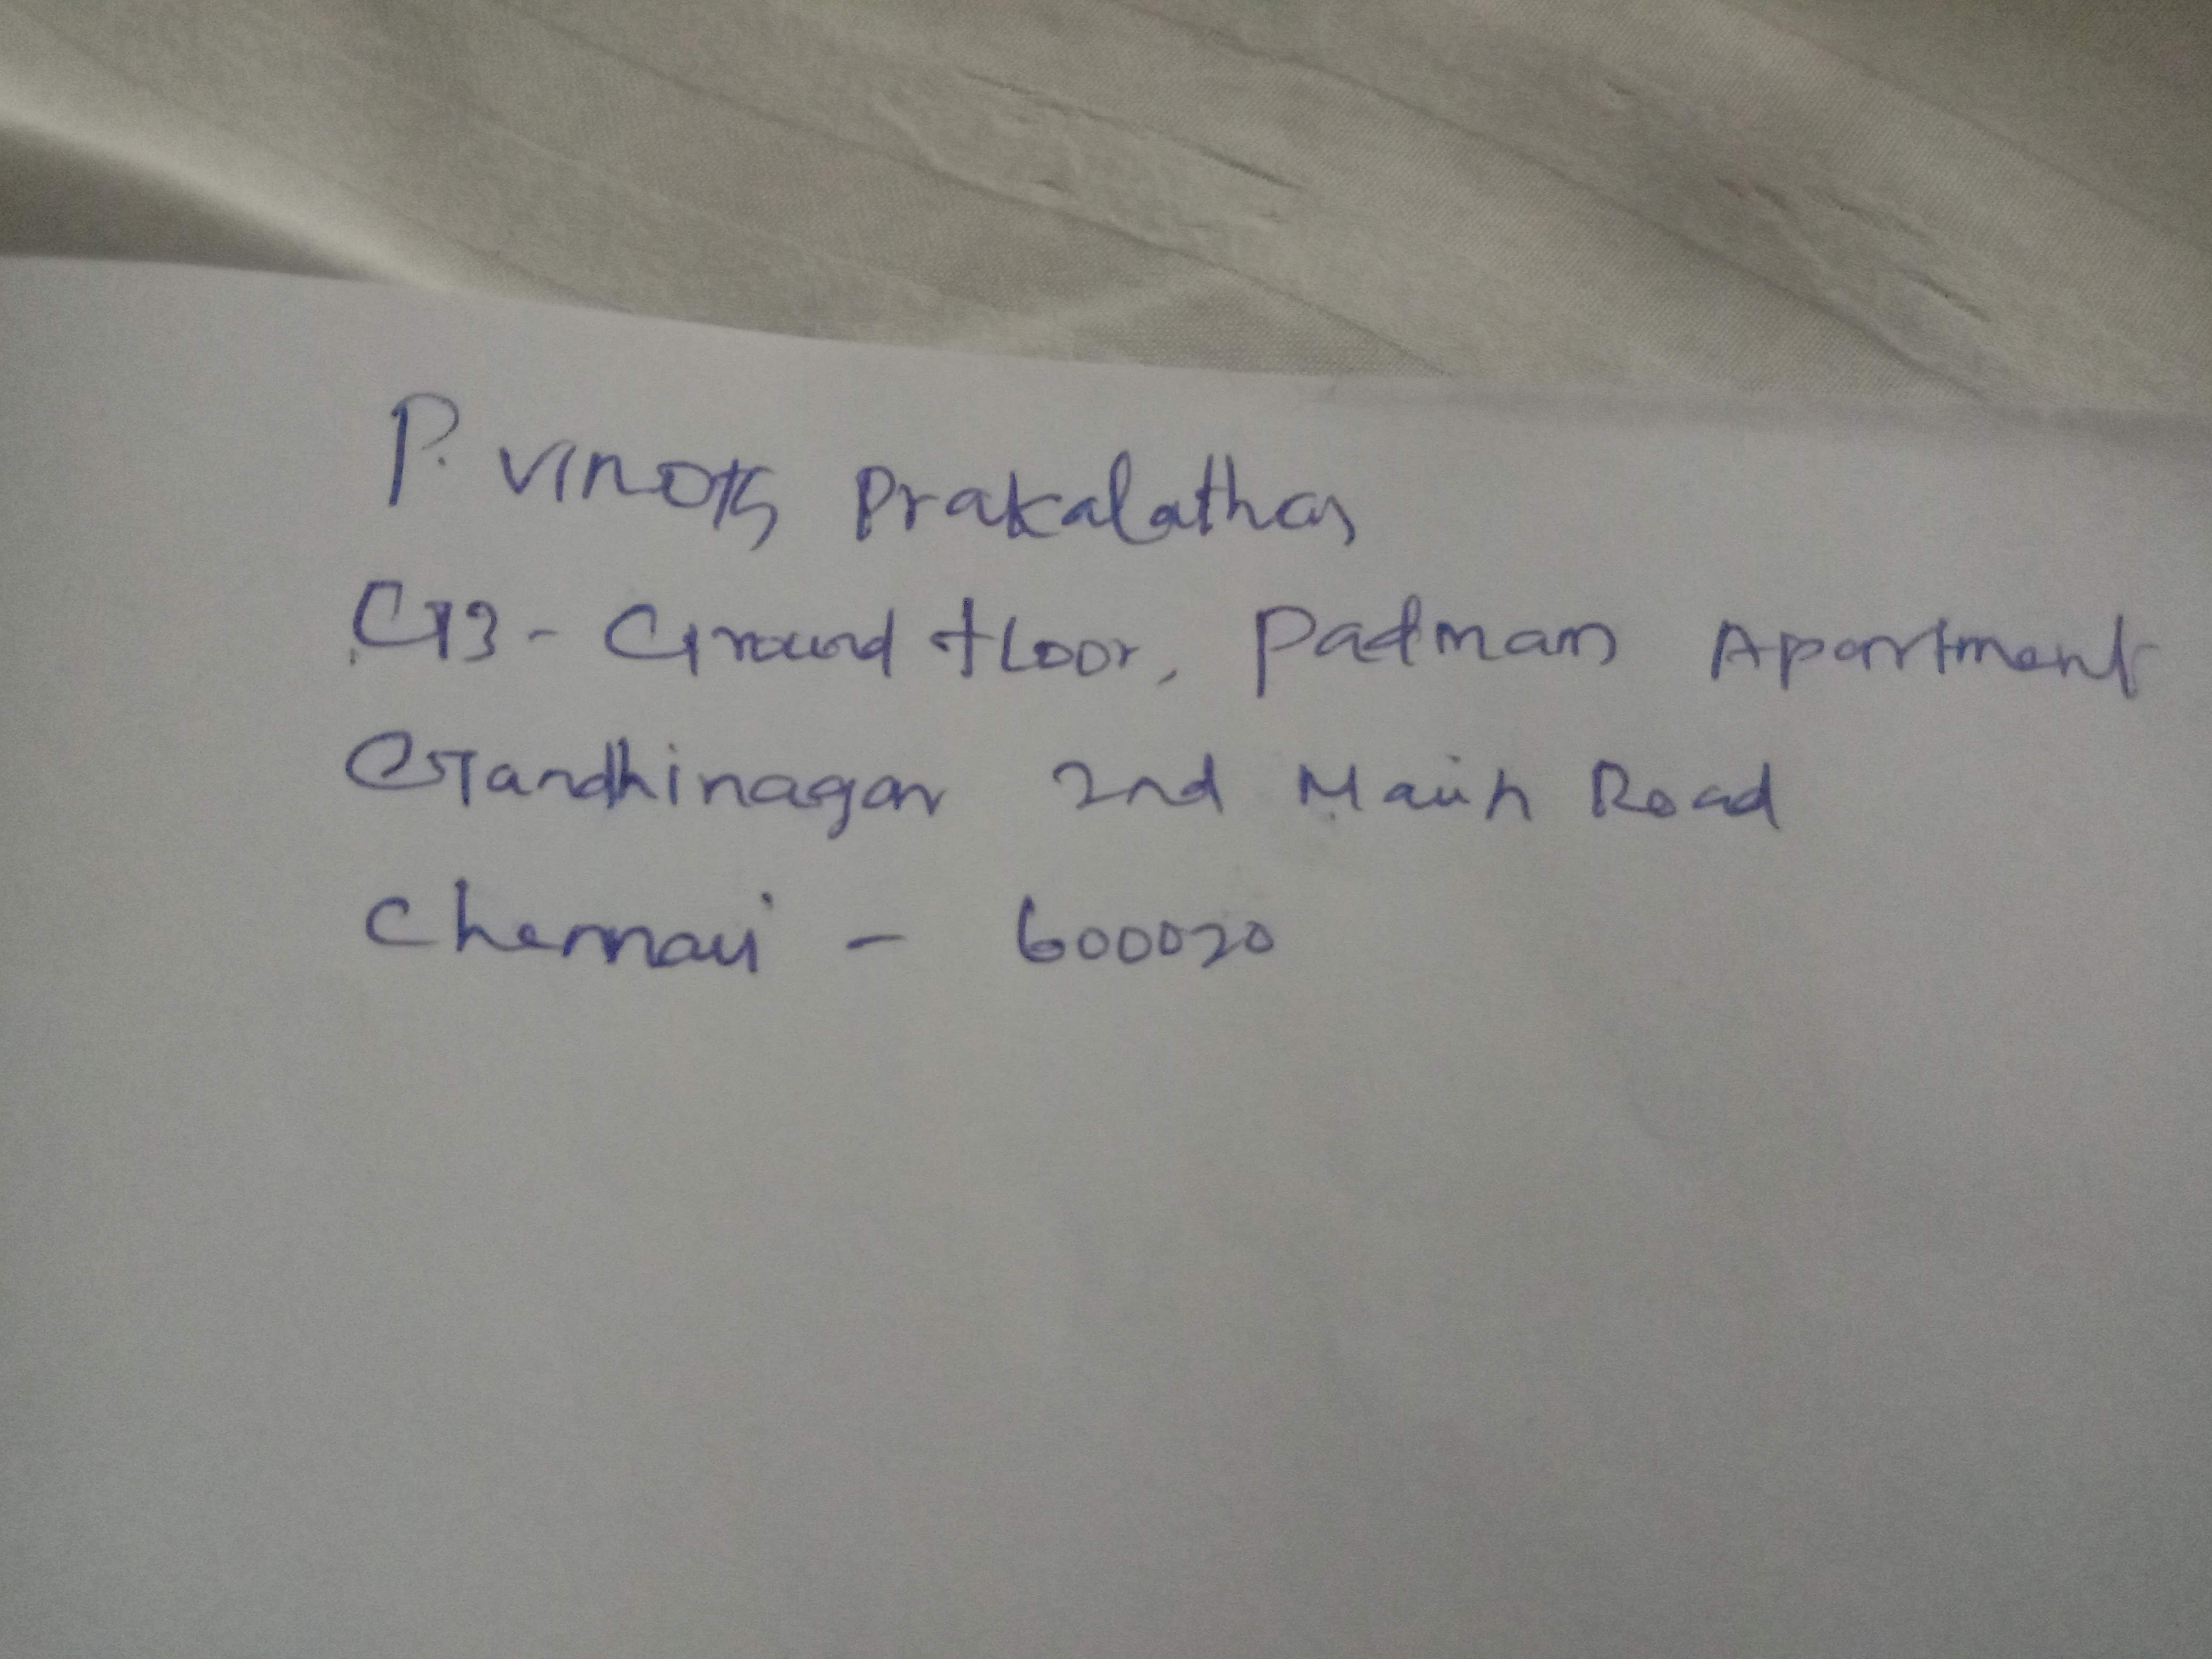 P. Vinoth Prakalathan
G3 - Ground floor, Padman Apartment
Gandhinagar 2nd Main Road
Chennai - 600020